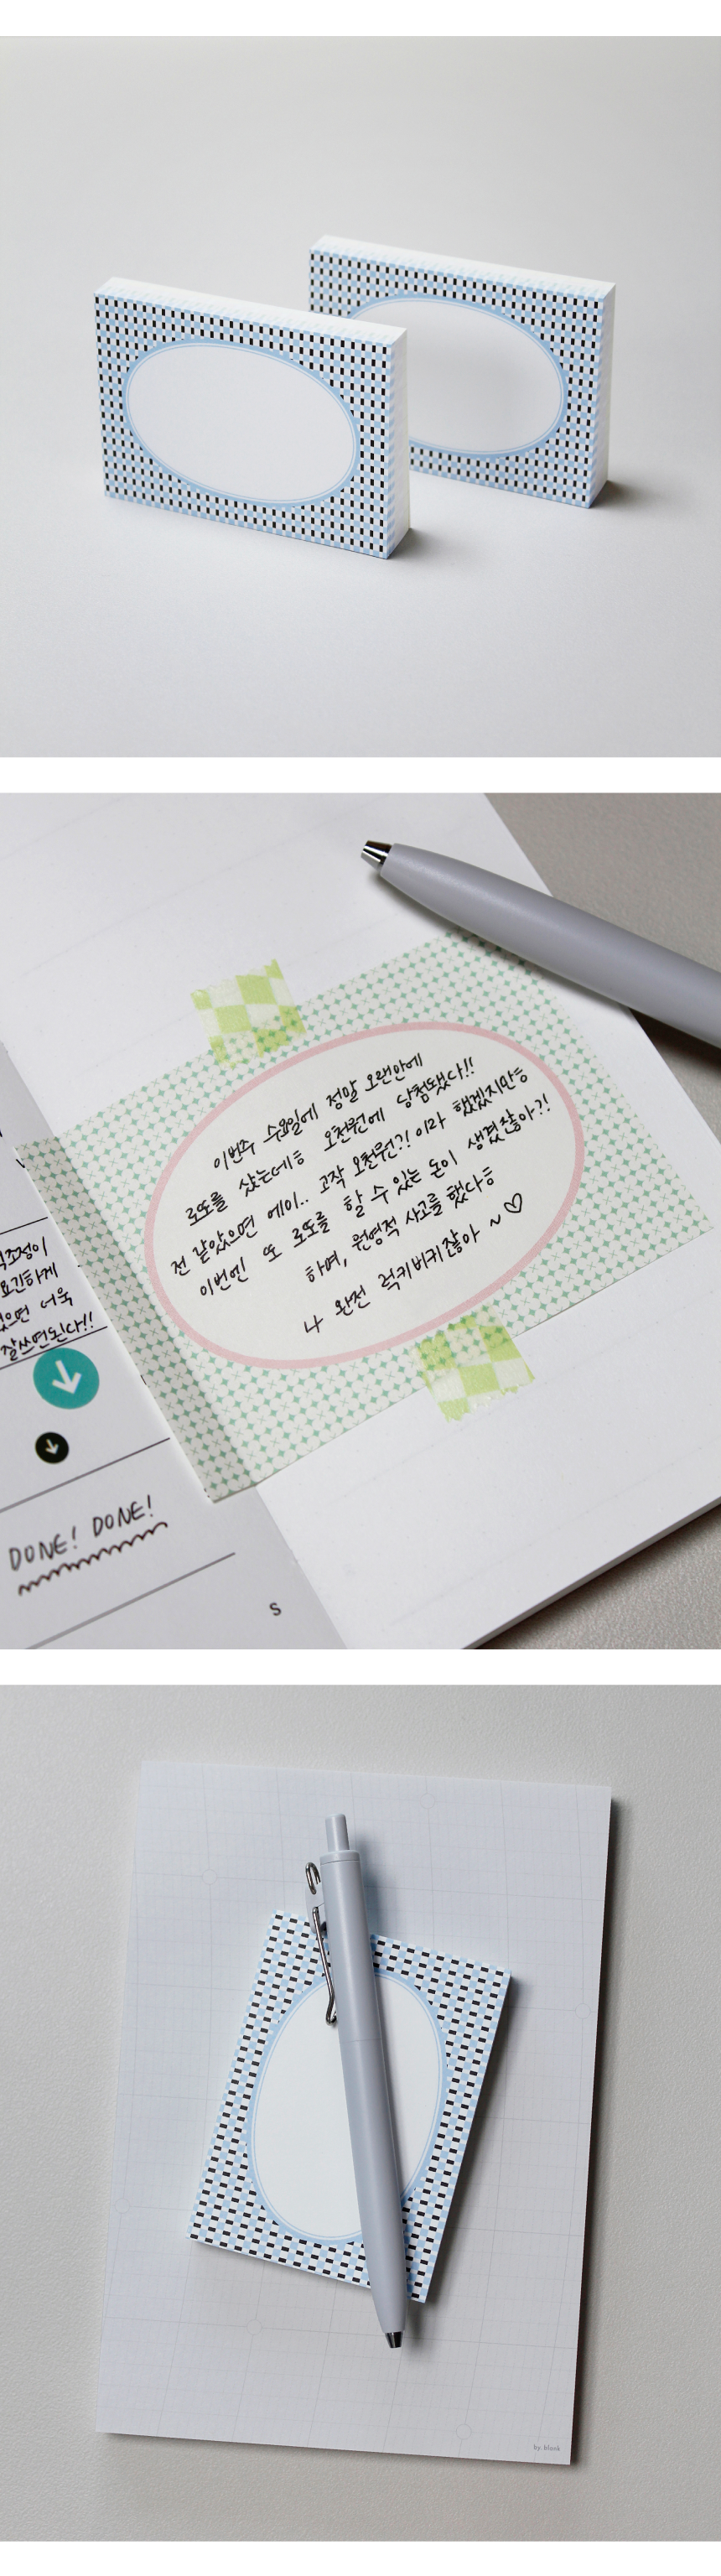 이번주 수요일에 정말 오랜만에
로또를 샀는데ㅎ 오천원에 당첨됐다!!
전 같았으면 에이.. 고작 오천원?! 이라 했겠지만ㅎ
이번엔! 또 로또를 할 수 있는 돈이 생겼잖아?!
하며, 원영적 사고를 했다ㅎ
나 완전 럭키비키잖아 ~ ♡
요긴하게
있으면 더욱
잘쓰면된다!!
DONE! DONE!
S
by. blank